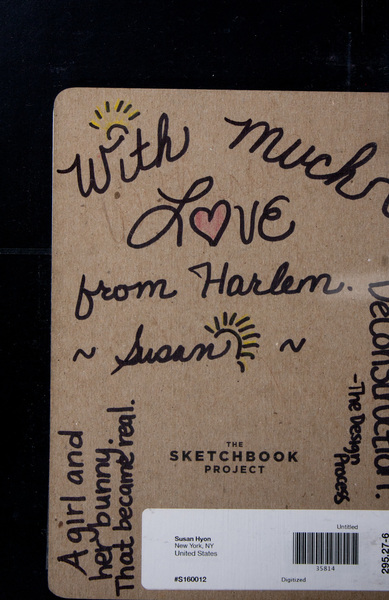 With much
LOVE
from Harlem.
~ Susan ~
Deconstruction.
-The Design
Process
A girl and
her bunny.
That became real.
THE
SKETCHBOOK
PROJECT
Untitled
Susan Hyon
New York, NY
United States
15814
#S160012
Digitized
295.27-6